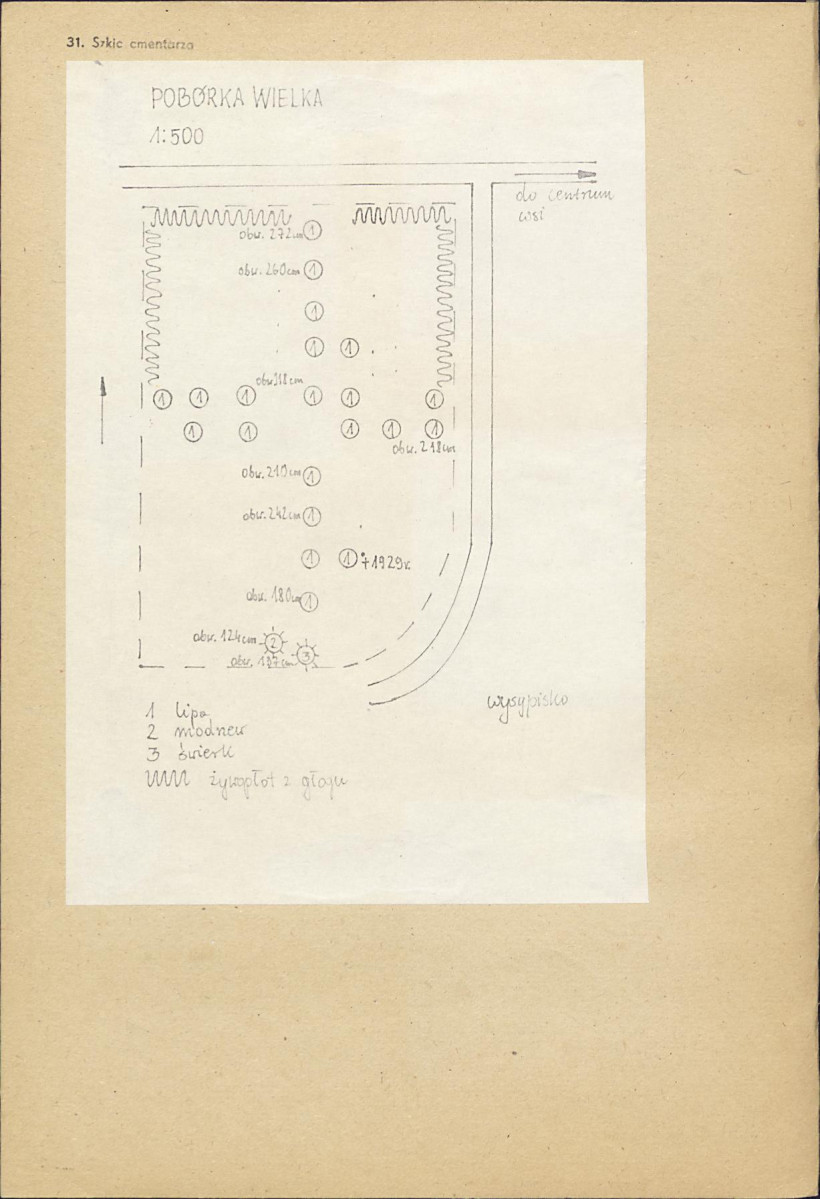 31. Szkic cmentarza
POBÓRKA WIELKA
1:500
do centrum
wsi
obw. 272cm 1
obw. 260cm 1
1
1 1
obw 318cm
1 1 1 1 1 1
1 1 1 1 1
obw. 218cm
obw. 210cm 1
obw. 242cm 1
1 1 +1929r.
obw. 180cm 1
obw. 124cm 2
obw. 137cm 3
wysypisko
1 lipa
2 modrzew
3 świerk
żywopłot z głogu